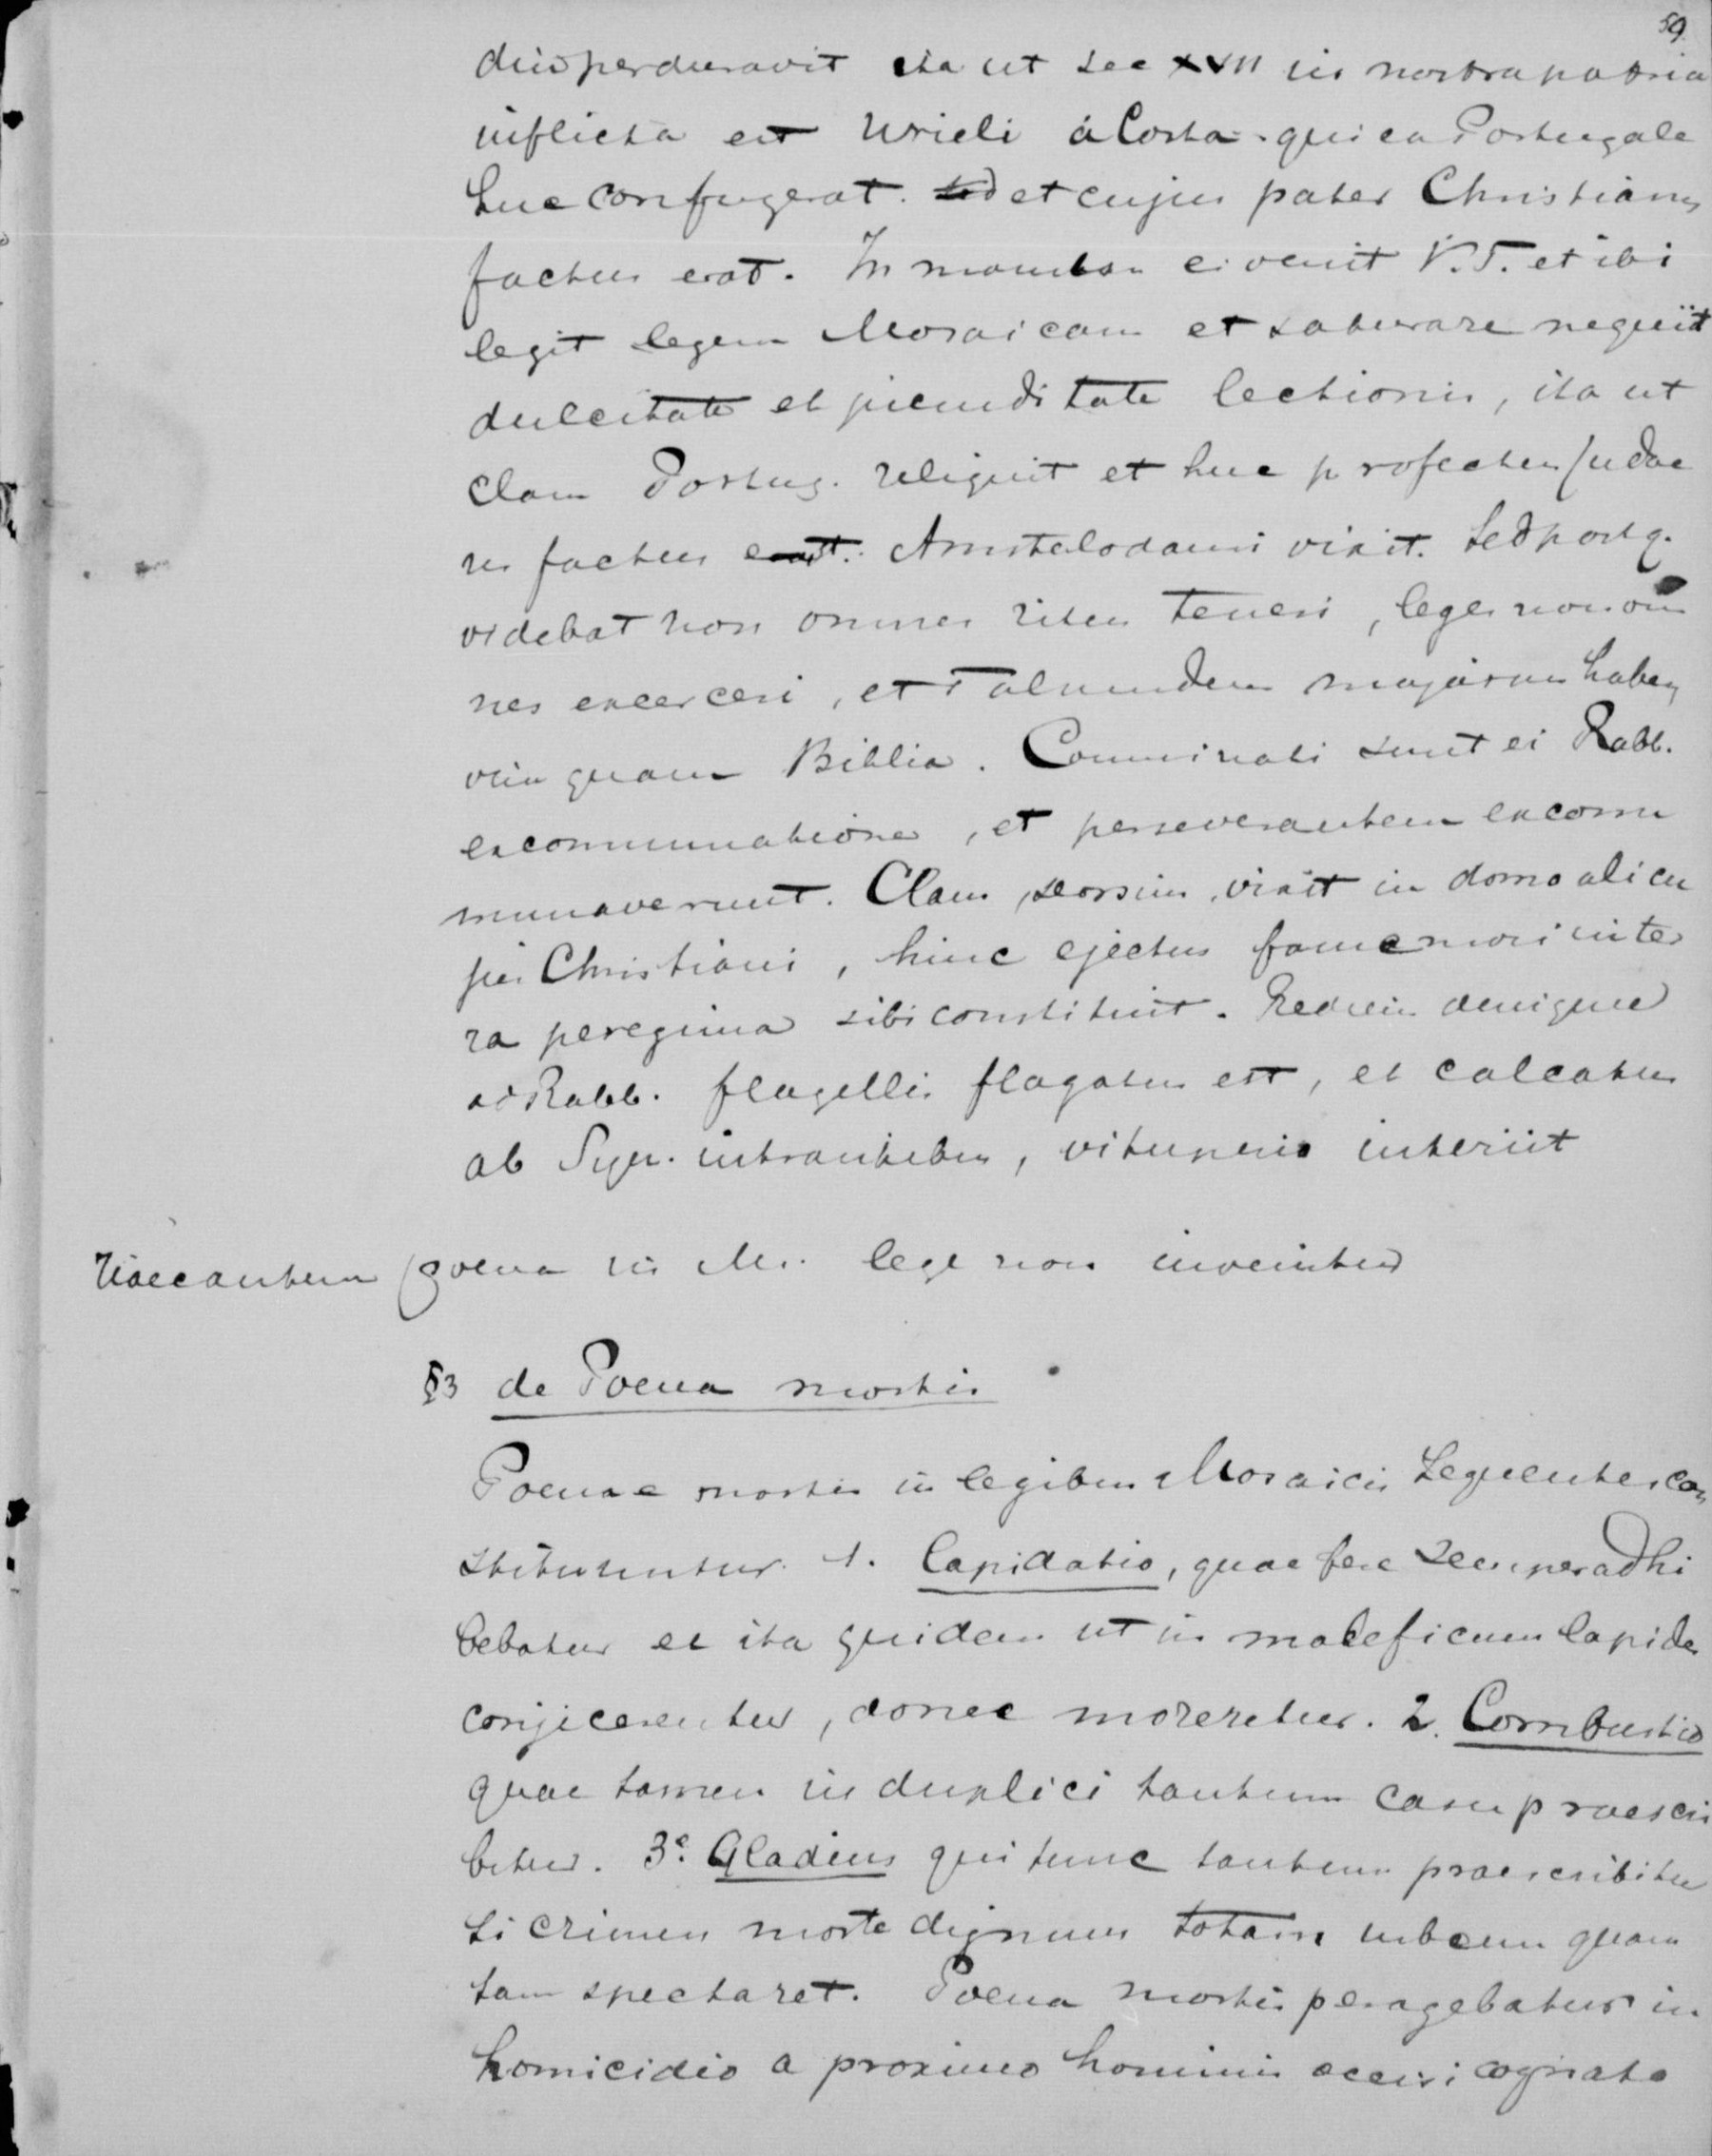 59
diu perduravit ita ut sec XVII in nostra patria
inflicta est Urieli á Costa qui ea Portugale
huc confugerat. et cujus pater Christianus
factus erat. In manibus ei venit V.T. et ibi
legit legem Mosaicam et saturare nequiit
dulcitate et jucunditate lectionis, ita ut
clam Portug. reliquit et huc profectus Judae
us factus est. Amstelodami vixit. Sed postq.
videbat non omnes ritus teneri, leges non om
nes excerceri, et Talmudem majorem haben
vim quam Biblia. Comminati sunt ei Rabb.
excommunatione, et perseverantem excom
munaverunt. Clam, seorsim, vixit in domo alicu
jus Christiani, hinc ejectus fame mori in ter
ra peregrina sibi constituit. Redux denique
ad Rabb. flagellis flagatus est, et calcatus
ab Syn. intrantibus, vituperio interiit
Haec autem poena in M. lege non invenitur
§3 de Poena mortis
Poenae mortis in legibus Mosaicis sequentes con
stituuntur. 1. Lapidatio, quae fere semper adhi
bebatur et ita quidem ut in maleficum lapides
conjicerentur, donec moreretur. 2. Combustio
quae tamen in duplici tantum casu praescri
bitur. 3º. Gladius qui tunc tantum praescribitur
si crimen morte dignum totam urbem quan
tam spectaret. Poena mortis peragebatur in
homicidio a proximo hominis occisi cognato